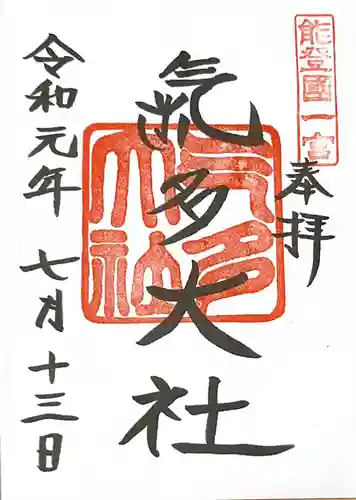 能登國一宮
奉拝
氣多大社
氣多大社
令和元年七月十三日